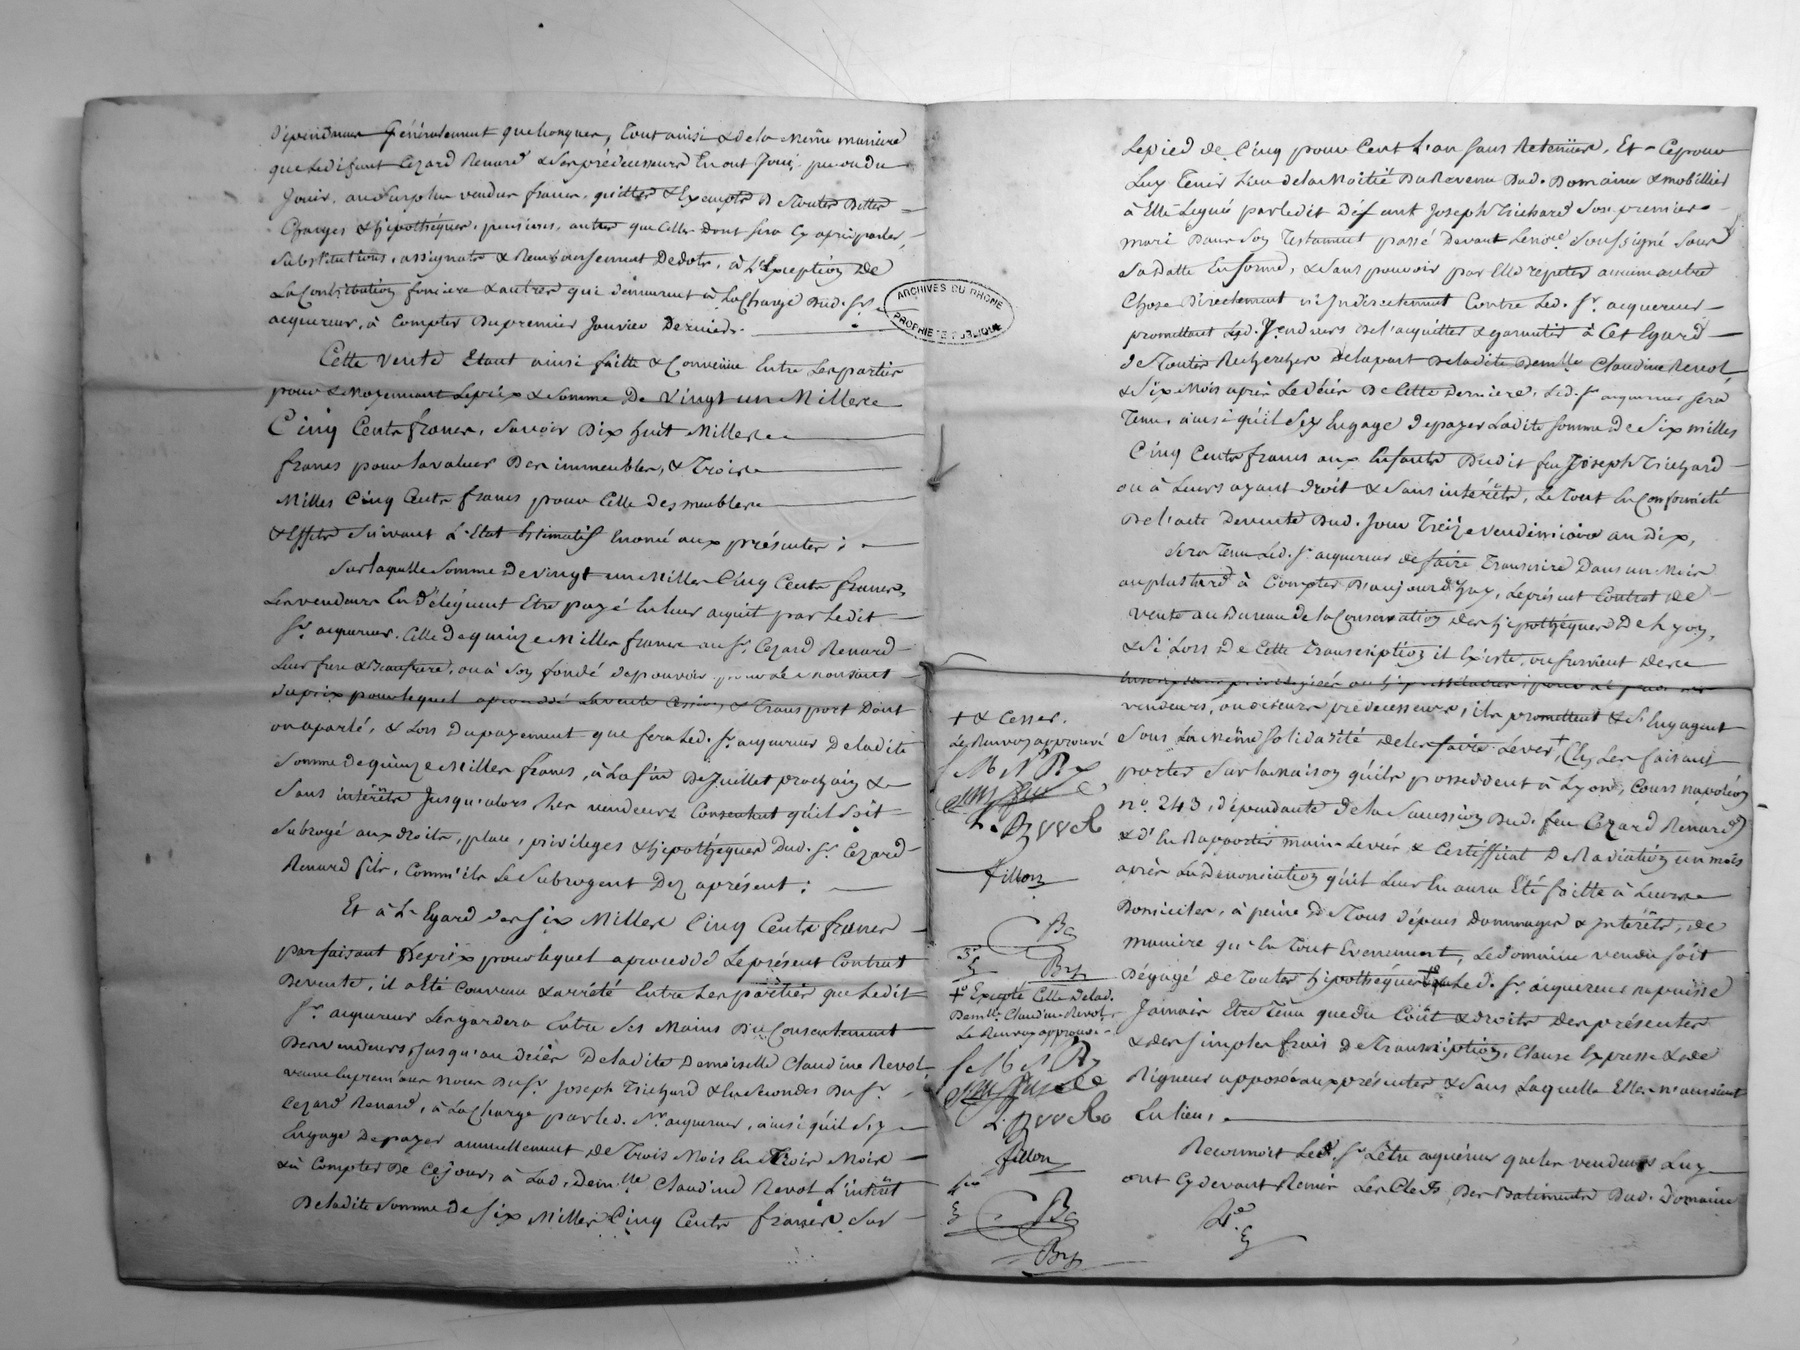 dépendances Généralement quelconques, tout ainsi & de la même manière
que ledéfunt Cezard Renard & ses prédécesseurs En ont Joui, pu ou du
Jouir, au surplus vendus francs, quittes & Exempts de Toutes Dettes
Charges & hipothéques, pensions, autres que Celles dont sera Cy après parler,
Substitutions, assignats & Remboursement De dots, à L'Exception De
La Contribution fonciere & autres qui demeurent à La Charge Dud. Sr.
acquereur, à Compter Du premier Janvier Dernier.
Cette vente Etant ainsi faitte & Convenüe Entre Les parties
pour & Moyennant Le prix & Somme De Vingt un Milles
Cinq Cents francs, Savoir Dix huit Milles
francs pour la valeur Des immeubles, & Trois
Milles Cinq Cents francs pour Celle des meubles
& Effets Suivant L'Etat Estimatif Enoncé aux présentes ;
Sur laquelle Somme De vingt un Milles Cinq Cents francs,
Les vendeurs En délèguent Etre payé En leur acquit par Ledit
Sr. acquereur. Celle De quinze Milles francs au Sr. Cezard Renard
Leur frere & Beaufrere, ou à Son fondé de pouvoir, pour Le montant
du prix pour lequel a procedé La vente Cession, & Transport Dont
on a parlé, & Lors Du payement que fera Led. Sr. acquereur De ladite
Somme de quinze Milles francs, à La fin De Juillet prochain &
Sans intérêts Jusqu'alors, Les vendeurs Consentent qu'il Soit
Subrogé aux droits, place, privileges & hipothéques Dud. Sr. Cezard
Renard fils, Comm'ils Le Subrogent Dez aprésent ;
Et à L'Egard des Six Milles Cinq Cents francs
parfaisant Le prix pour lequel a procedé Le présent Contrat
De vente, il a Eté Convenu & arrété Entre Les parties que Ledit
Sr. acquereur Les gardera Entre Ses Mains Du Consentement
Des vendeurs, Jusqu'au décès De ladite Demoiselle Claudine Revol,
veuve En premieres noces Du Sr. Joseph Trichard & En Secondes Du Sr.
Cezard Renard, à La Charge par Led. Sr. acquereur, ainsi qu'il S'y
Engage De payer annuellement de Trois Mois En Trois Mois
& à Compter De Ce jour, à Lad. Demlle. Claudine Revol L'intérêt
De ladite Somme de Six Milles Cinq Cents francs Sur
ARCHIVES DU RHONE
PROPRIETE PUBLIQUE
Le pied de Cinq pour Cent L'an Sans Retenües, Et Ce pour
Luy Tenir Lieu de la Moitié Du Revenu Dud. Domaine & mobillier
à Elle Legué par ledit défunt Joseph Trichard Son premier
mari Dans Son Testament passé Devant Le nore. Soussigné Sous
Sa Datte En forme, & Sans pouvoir par Elle répeter aucune autre
Chose Directement ni Indirectement Contre Led. Sr. acquereur
promettant Led. Vendeurs De l'acquitter & garantir à Cet Egard
de Toutes Recherches De la part De ladite Demlle. Claudine Revol,
& Six Mois après Le décès De Cette Derniere, Led. Sr. acquereur sera
Tenu ainsi qu'il S'y Engage de payer Ladite Somme De Six milles
Cinq Cents francs aux Enfants Dudit feu Joseph Trichard
ou à Leurs ayant droit & Sans intérêts, Le Tout En Conformité
De l'acte De vente Dud. Jour Treize vendemiaire an Dix,
Sera Tenu Led. Sr. acquereur de faire Transcrire Dans un Mois
au plus tard à Compter D'aujourd'huy, Le présent Contrat de
vente au Bureau de la Conservation des hipothéques De Lyon,
& Si Lors De Cette Transcription il Existe, ou Survient des
Inscriptions privilegiées ou hipothécaires,
vendeurs, ou de leurs prédecesseurs, ils promettent & S'Engagent
Sous La Même Solidarité de les faire Lever + En Les faisant
porter Sur La maison qu'ils possedent à Lyon, Cours napoléon
no. 243, dépendante de la Succession Dud. feu Cezard Renard
& d'En Rapporter main-Levée, & Certifficat De Radiation un mois
après La Dénonciation qu'il Leur En aura Eté faitte à Leurs
Domiciles, à peine De Tous dépens dommages & Intérêts, de
maniere qu'En Tout Evenement, Le domaine vendu Soit
Dégagé de Toutes hipothéques & que Led. Sr. aiquereur ne puisse
Jamais Etre Tenu que du Coût & droits Des présentes
& des Simples frais de Transcription, Clause Expresse & de
Rigueur apposée aux présentes & Sans Laquelle Elles n'auroient
Eu lieu.
Reconnoit Led. Sr. L'être aquéreur que les vendeurs Luy
ont Cy devant Remis Les Clefs Des Batiments Dud. Domaine
+ & Cesser.
Le Renvoy approuvé
fillon
+ Excepté Celle De lad.
Demlle. Claudine Revol,
Le Renvoy approuvé
fillon